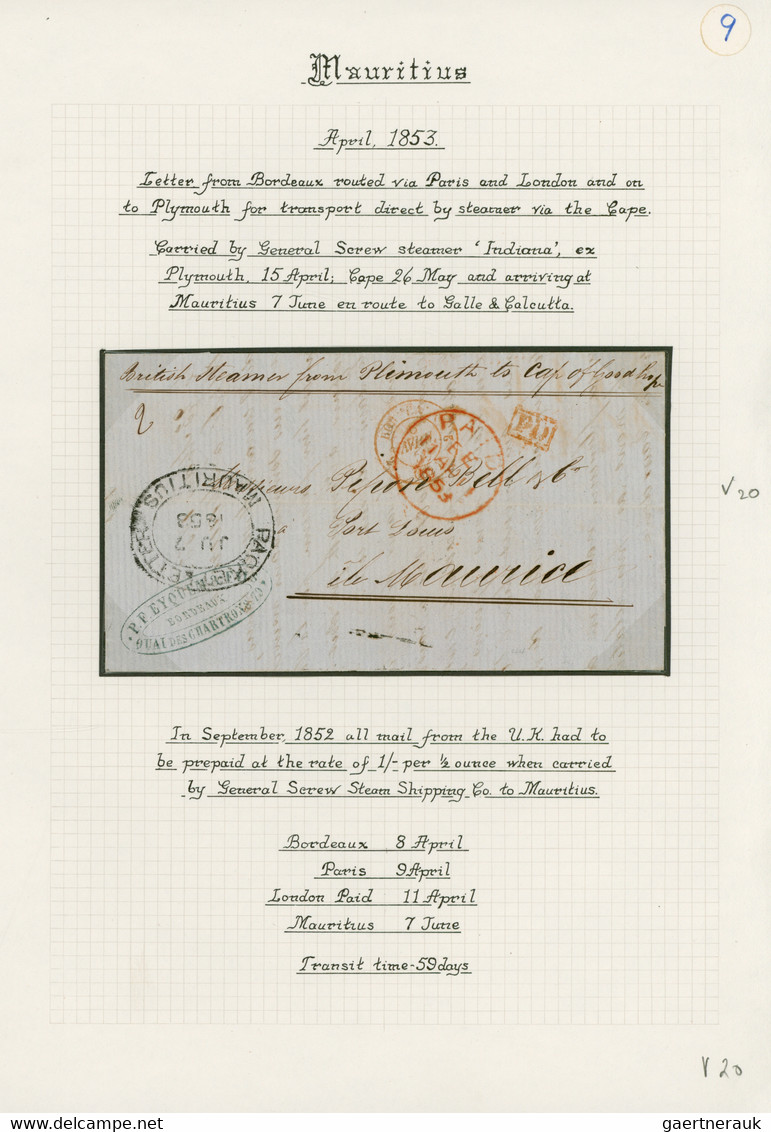 9
Mauritius
April, 1853.
Letter from Bordeaux routed via Paris and London and on
to Plymouth for transport direct by steamer via the Cape.
Carried by General Screw steamer 'Indiana', ex
Plymouth, 15 April; Cape 26 May and arriving at
Mauritius 7 June en route to Galle & Calcutta.
British Steamer from Plimouth to Cap of Good hope
2
PAID
1853
P.D.
Messieurs Pipon Bell & Co
a
Port Louis
ile Maurice
MAURITIUS
1853
JU 7
PACKET LETTER
P.F. EYQUEM
BORDEAUX
QUAI DES CHARTRONS
V20
In September, 1852 all mail from the U.K. had to
be prepaid at the rate of 1/- per ½ ounce when carried
by General Screw Steam Shipping Co. to Mauritius.
Bordeaux 8 April
Paris 9 April
London Paid 11 April
Mauritius 7 June
Transit time-59 days
V 20
gaertnerauk